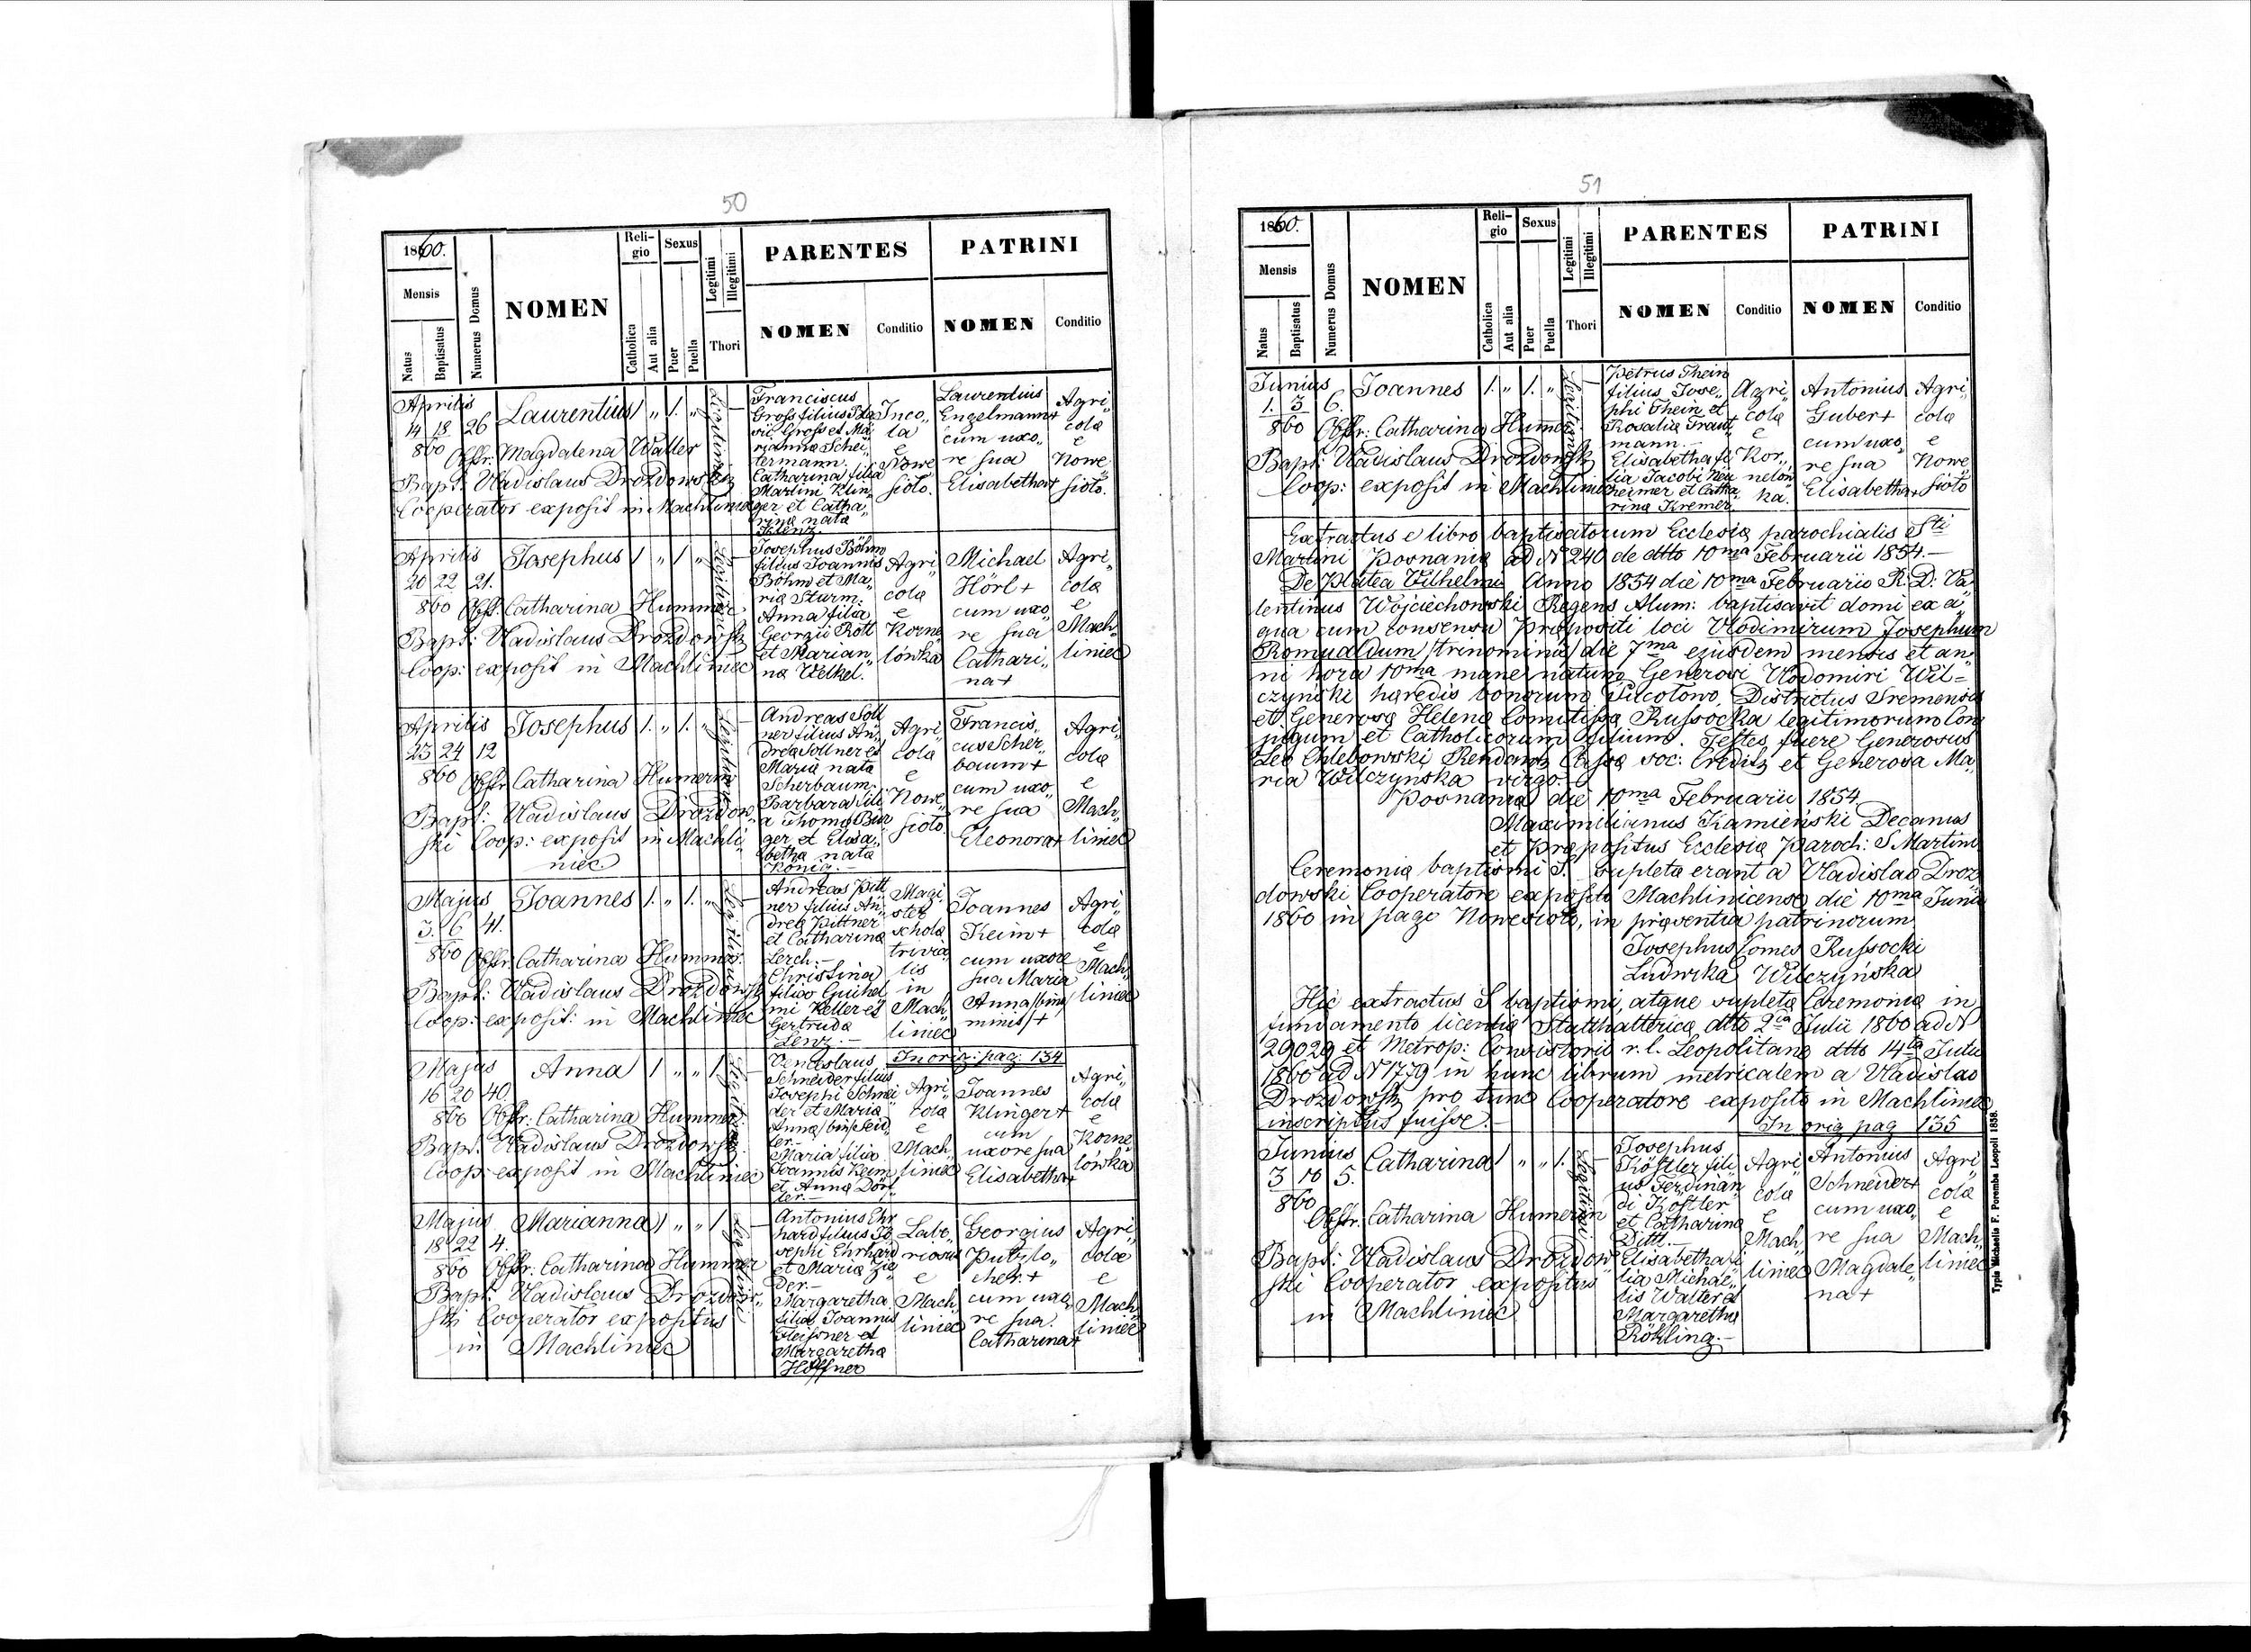 50
1860.
Mensis
Natus
Baptisatus
Numerus Domus
NOMEN
Religio
Catholica
Aut alia
Sexus
Puer
Puella
Legitimi
Illegitimi
Thori
PARENTES
NOMEN
Conditio
PATRINI
NOMEN
Conditio
Aprilis
14 18 26
860
Laurentius 1 „ 1. „
Legitimi
Obstr. Magdalena Walter
Bapt: Vladislaus Drozdowski
Cooperator exposit in Machliniec
Franciscus
Gross filius
Gross et Ma„
rianna Schei„
termann.
Catharina filia
Martini Klin„
ger et Catha„
rina nata
Klenz
Inco„
la
e
Nowe
sioło.
Laurentius
Engelmann+
cum uxo„
re sua
Elisabetha+
Agri„
cola
e
Nowe
sioło.
Aprilis
20 22 21.
860
Josephus 1 „ 1 „
Legitimi
Obst. Catharina Hummer
Bapt: Vladislaus Drozdowski
Coop: exposit in Machliniec
Josephus Böhm
filius Joannis
Böhm et Ma„
ria Sturm.
Anna filia
Georgii Rott
et Marian„
na Welkel.
Agri„
cola
e
Korne
lówka
Michael
Hörl +
cum uxo„
re sua
Cathari„
na+
Agri„
cola
e
Mach„
liniec
Aprilis
23 24 12
860
Josephus 1. „ 1. „
Legitimi
Obstr. Catharina Humerin
Bapt: Vladislaus Drozdow„
ski Coop: exposit in Machli„
niec
Andreas Soll
ner filius An„
dreæ Sollner et
Maria nata
Scherbaum.
Barbara fili
a Thomæ Bin
ger et Elisa„
betha nata
König.
Agri„
cola
e
Nowe„
sioło
Francis„
cus Scher„
baum+
cum uxo„
re sua
Eleonora+
Agri„
cola
e
Mach„
liniec
Majus
3. 6 41.
860
Joannes 1. „ 1. „
Legitimi
Obstr. Catharina Hummer.
Bapt: Vladislaus Drozdowski
Coop: exposit: in Machliniec
Andreas Pitt
ner filius An„
dreæ Pittner
et Catharina
Lerch.—
Christina
filia Guihel
mi Keller et
Gertruda
Lenz.—
Magi„
ster
schola
trivia
lis
in
Mach„
liniec
Joannes
Keim+
cum uxore
sua Maria
Anna /bino
minis/+
Agri„
cola
e
Mach„
liniec
In orig: pag: 134
Majus
16 20 40.
860
Anna 1 „ „ 1
Legitimi
Obstr: Catharina Hummer.
Bapt. Vladislaus Drozdowski.
Coop: exposit in Machliniec
Venceslaus
Schneider filius
Josephi Schnei
der et Maria
Anna /bin/ Seid„
ler.—
Maria filia
Joannis Keim
et Anna Dört
ler.—
Agri„
cola
e
Mach„
liniec
Joannes
Klinger+
cum
uxore sua
Elisabetha+
Agri„
cola
e
Korne
lówka
Majus
18 22 4.
860
Marianna 1 „ „ 1
Legitimi
Obstr: Catharina Hummer
Bapt. Vladislaus Drozdow„
ski Cooperator expositus
in Machliniec
Antonius Ehr
hard filius Jo
sephi Ehrhard
et Maria Zie
der.—
Margaretha
filia Joannis
Fleissner et
Margaretha
Höffner
Labo„
riosus
e
Mach„
liniec
Georgius
Putzlo„
cher. +
cum uxo„
re sua.
Catharina+
Agri„
cola
e
Mach„
liniec
51
1860.
Mensis
Natus
Baptisatus
Numerus Domus
NOMEN
Religio
Catholica
Aut alia
Sexus
Puer
Puella
Legitimi
Illegitimi
Thori
PARENTES
NOMEN
Conditio
PATRINI
NOMEN
Conditio
Junius
1. 3 6.
860
Joannes 1. „ 1. „
Legitimi
Obstr: Catharina Humer.
Bapt: Vladislaus Drozdowski
Coop: exposit in Machliniec
Petrus Thein
filius Jose„
phi Thein et
Rosalia Traut„
mann.—
Elisabetha fi
lia Jacobi Neu
heimer et Catha
rina Kremer
Agri„
cola
e
Kor„
nelów
ka.
Antonius
Guber+
cum uxo„
re sua
Elisabetha+
Agri„
cola
e
Nowe„
sioło
Extractus e libro baptisatorum Ecclesiæ parochialis Sti
Martini Posnaniæ ad No 240 de dtto 10ma Februarii 1854.—
De Platea Vilhelmi Anno 1854 die 10ma Februario R. D. Va
lentinus Wojciechowski Regens Alum: baptisavit domi ex a„
qua cum consensu Præpositi loci Vlodimirum Josephum
Romualdum /trinominis/ die 7ma ejusdem mensis et an„
ni hora 10ma mane natum, Generosi Vlodomiri Wil=
czyński hæredis bonorum Districtus Sremensis
et Generosæ Helenæ Comitissæ Russocka legitimorum Con
jugum et Catholicorum filium. Testes fuere Generosus
Leo Chlebowski Rendant Cassæ soc: Credit; et Generosa Ma„
ria Wilczynska virgo.
Posnania die 10ma Februarii 1854.
Maximilianus Kamieński Decanus
et Præpositus Ecclesiæ Paroch: S Martini
Ceremoniæ baptismi S. supletæ erant a Vladislao Droz
dowski Cooperatore exposito Machlinicense die 10ma Junii
1860 in pago Nowesioło, in præsentia patrinorum.
Josephus Comes Russocki
Ludwika Wilczyńska
Hic extractus S baptismi, atque supletæ Ceremoniæ in
fundamento licentiæ Statthalterica dtto 2ia Julii 1860 ad No
29029 et Metrop: Consistorii r. l. Leopolitana dtto 14ta Julii
1860 ad No 1779 in hunc librum metricalem a Vladislao
Drozdowski pro tunc Cooperatore exposito in Machliniec
inscriptus fuisse.—
In orig pag 135
Junius
3 10 5.
860
Catharina 1 „ „ 1.
Legitimi
Obstr. Catharina Humerin
Bapt: Vladislaus Drozdow„
ski Cooperator expositus
in Machliniec
Josephus
Köstler fili
us Ferdinan
di Köstler
et Catharina
Dittl.—
Elisabetha fi
lia Michae„
lis Walter et
Margaretha
Rökling.—
Agri„
cola
e
Mach„
liniec
Antonius
Schneider+
cum uxo„
re sua
Magdale„
na+
Agri„
cola
e
Mach„
liniec
Typis Michaelis F. Poremba Leopoli 1858.